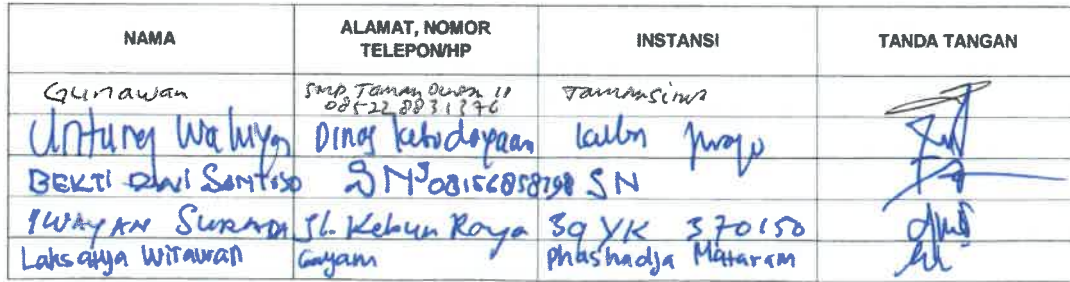 NAMA ALAMAT, NOMOR TELEPON/HP INSTANSI TANDA TANGAN
Gunawan SMP Taman Dewasa 085228831376 Tamansiswa
Untung Waluyo Dinas Kebudayaan Kulon Progo
BEKTI DWI SANTOSO SN 08156858798 SN
I WAYAN SURADA Jl. Kebun Raya 39 YK 370150
Laksahya Wirawan Gayam Phashadja Mataram